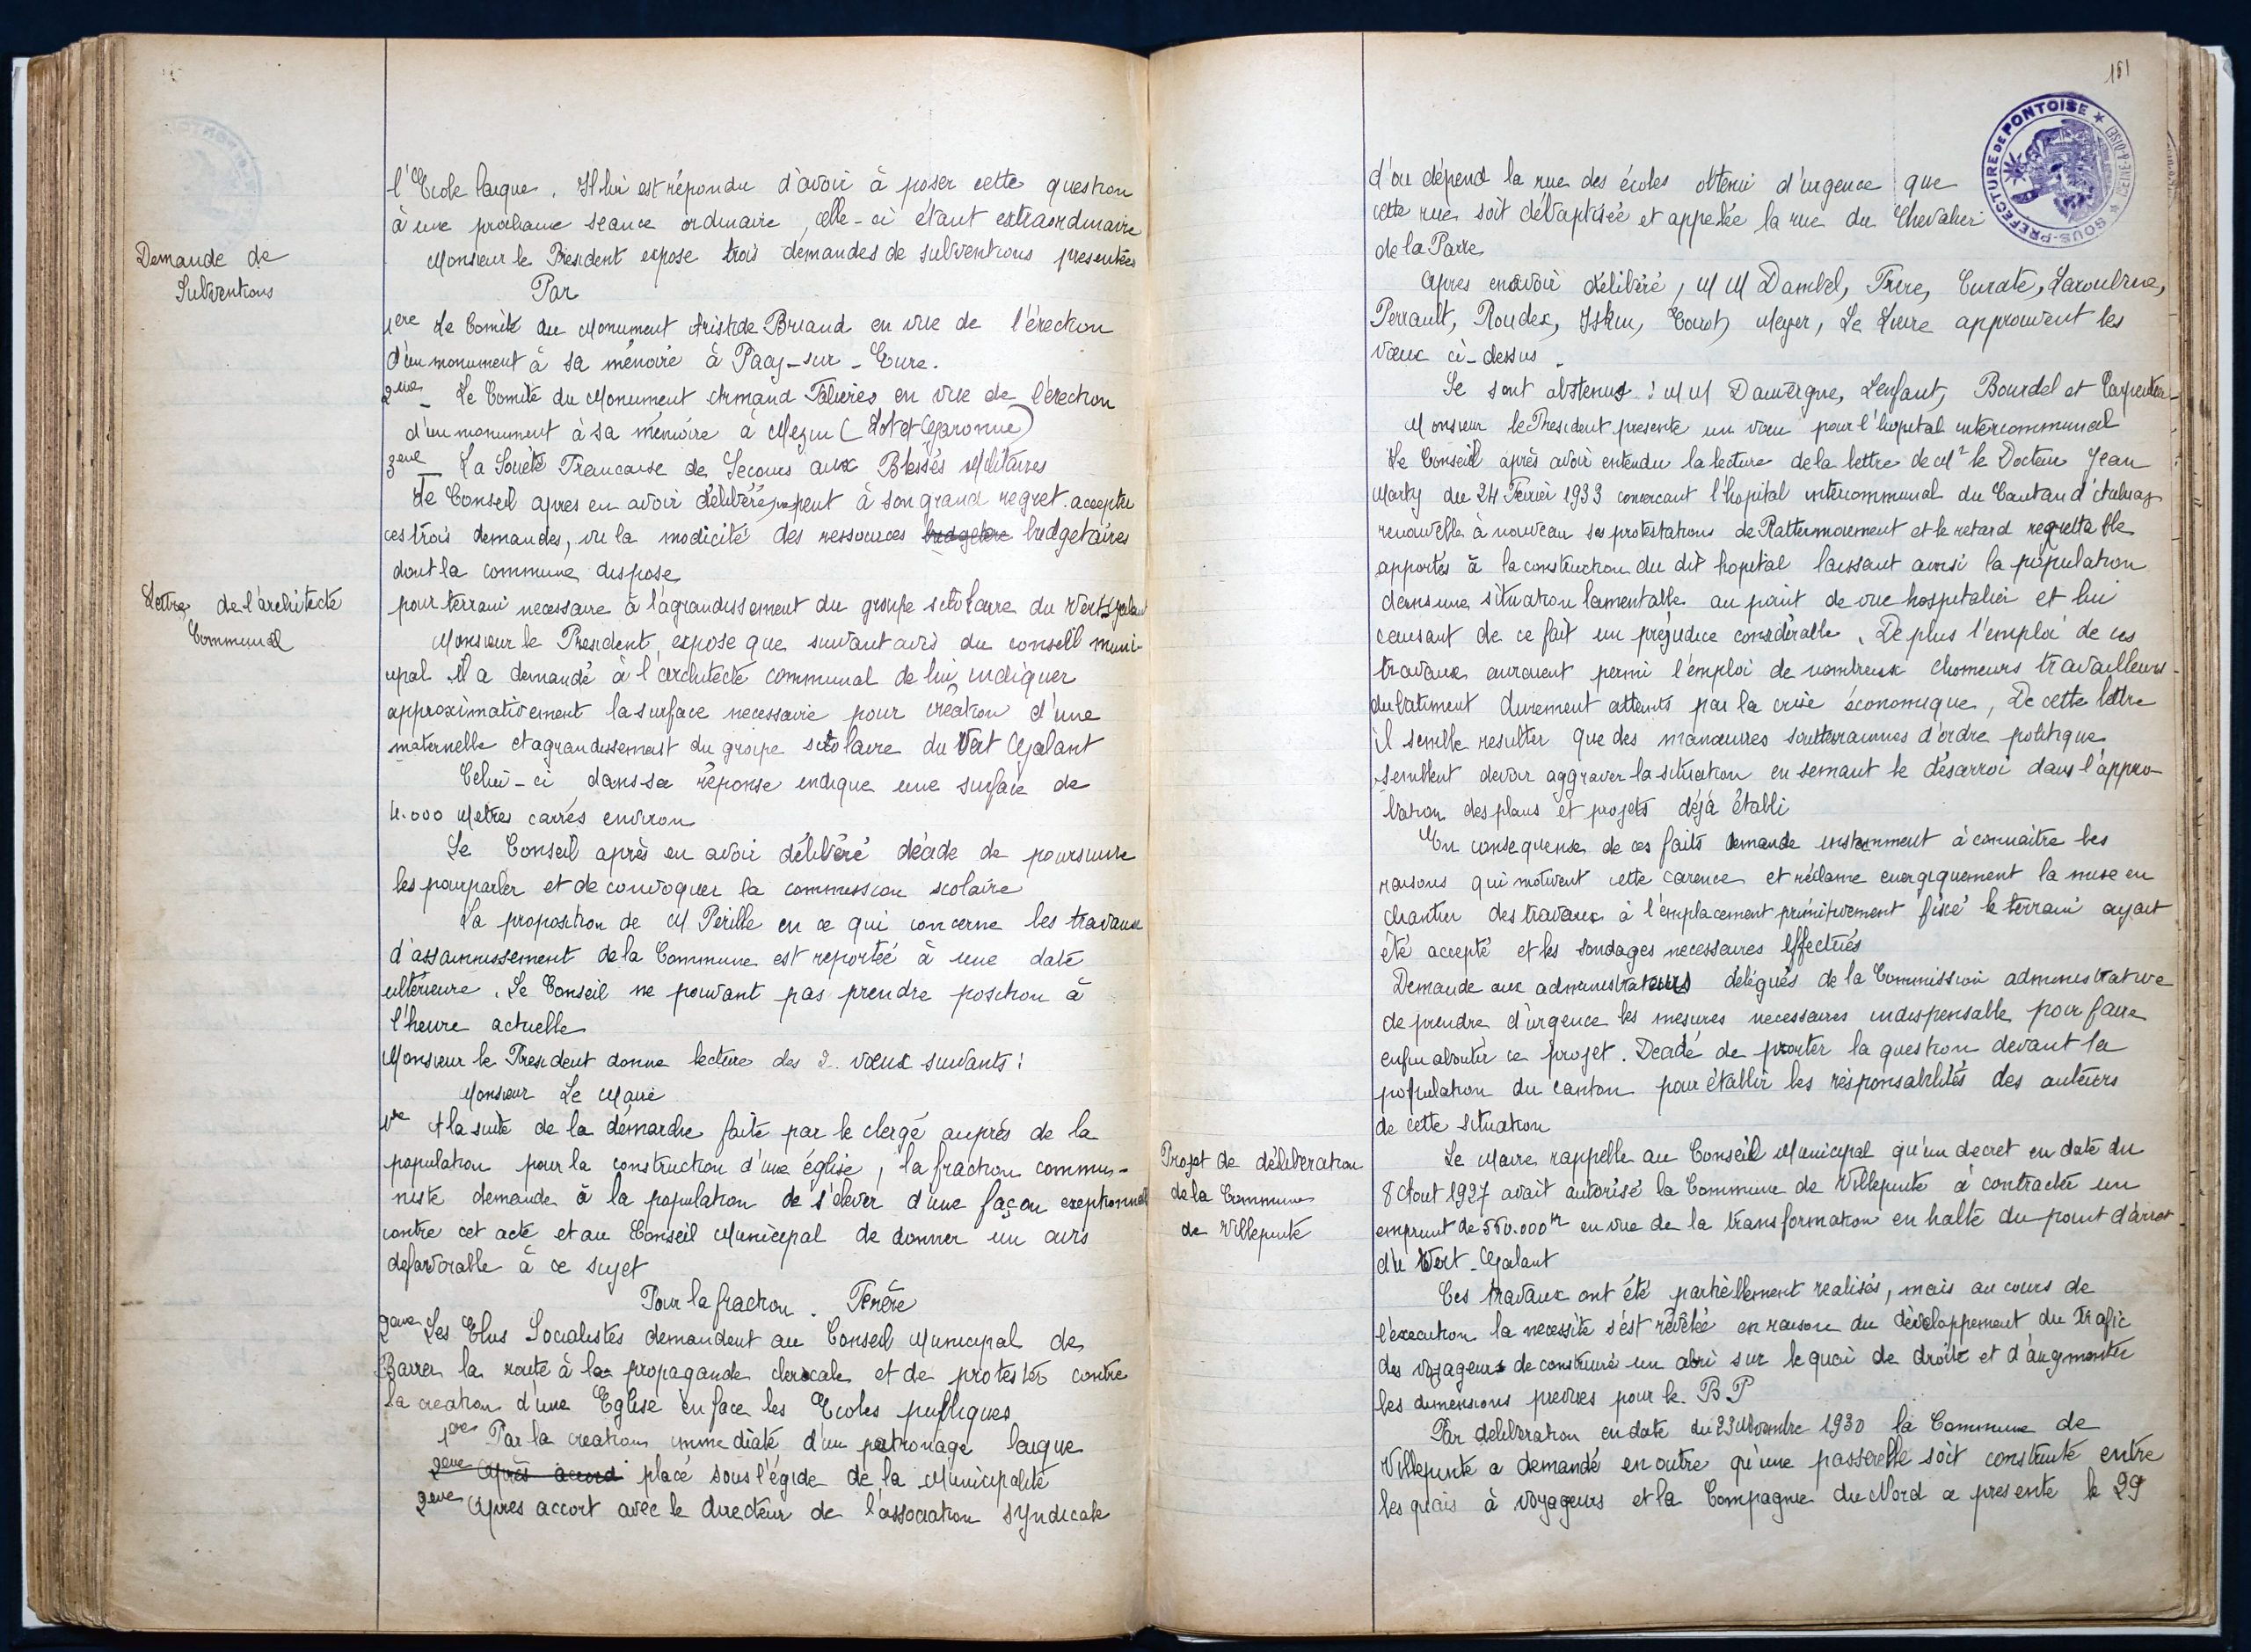 l'Ecole laïque. Il lui est répondu d'avoir à poser cette question
à une prochaine séance ordinaire, celle-ci étant extraordinaire
Demande de
Subventions
Monsieur le President expose trois demandes de subventions presentées
Par
1ere Le Comité du Monument Aristide Briand en vue de l'érection
d'un monument à sa mémoire à Pacy-sur-Eure.
2eme - Le Comité du Monument Armand Falières en vue de l'érection
d'un monument à sa mémoire à Mezin (Lot et Garonne)
3eme - La Société Francaise de Secours aux Blessés Militaires
Le Conseil apres en avoir délibéré, ne peut à son grand regret accepter
ces trois demandes, vu la modicité des ressources budgetere budgetaires
dont la commune dispose
Lettre de l'architecte
Communal
pour terrain necessaire à l'agrandissement du groupe scolaire du Vert galant
Monsieur le President expose que suivant avis du conseil muni-
cipal il a demandé à l'architecte communal de lui indiquer
approximativement la surface necessaire pour création d'une
maternelle et agrandissement du groupe scolaire du Vert Galant
Celui-ci dans sa réponse indique une surface de
4.000 Metres carrés environ
Le Conseil après en avoir délibéré décide de poursuivre
les pourparler et de convoquer la commission scolaire
La proposition de M Perille en ce qui concerne les travaux
d'assainissement de la Commune est reportée à une date
ultérieure. Le Conseil ne pouvant pas prendre position à
l'heure actuelle
Monsieur le President donne lecture des 2 vœux suivants :
Monsieur Le Maire
1re A la suite de la démarche faite par le clergé auprés de la
population pour la construction d'une église, la fraction commu-
niste demande à la population de s'élever d'une façon exeptionnelle
contre cet acte et au Conseil Municipal de donner un avis
defavorable à ce sujet
Pour la fraction. Frère
2eme Les Elus Socialistes demandent au Conseil Municipal de
Barrer la route à la propagande clericale et de protester contre
la creation d'une Eglise en face les Ecoles publiques
1ere Par la creation immediate d'un patronage laïque
2eme Après accord placé sous l'égide de la Municipalité
2eme Apres accort avec le directeur de l'association syndicale
151
SOUS-PREFECTURE DE PONTOISE
d'ou dépend la rue des écoles obtenir d'urgence que
cette rue soit débaptisée et appelée la rue du Chevalier
de la Barre
Apres en avoir délibéré, M M Dambel, Frere, Curate, Laroubine,
Perrault, Roudex, Iskin, Corot, Meyer, Le Lièvre approuvent les
vœux ci-dessus.
Se sont abstenus : M M Dauvergne, Lenfant, Bourdel et Carpentier
Monsieur le President presente un vœu pour l'hopital intercommunal
Le Conseil après avoir entendu la lecture de la lettre de Mr le Docteur Jean
Marty du 24 Fevrier 1933 concercant l'hopital intercommunal du Canton d'Aulnay
renouvelle à nouveau ses protestations de l'attermoiement et le retard regrettable
apportés à la construction du dit hopital laissant ainsi la population
dans une situation lamentable au point de vue hospitalier et lui
causant de ce fait un préjudice considérable. De plus l'emploi de ces
travaux auraient permi l'emploi de nombreux chomeurs travailleurs
du batiment durement atteints par la crise économique, De cette lettre
il semble resulter que des manœuvres souterraines d'ordre politique
semblent devoir aggraver la situation en semant le désarroi dans l'appro-
bation des plans et projets déjà établi
En consequense de ces faits demande instamment à connaitre les
raisons qui motivent cette carence et réclame energiquement la mise en
chantier des travaux à l'emplacement primitivement fixé le terrain ayant
été accepté et les sondages necessaires effectués
Demande aux administrateurs délégués de la Commission administrative
de prendre d'urgence les mesures necessaires indispensable pour faire
enfin aboutir ce projet. Décidé de porter la question devant la
population du canton pour établir les résponsabilités des auteurs
de cette situation
Projet de délibération
de la Commune
de Villepinte
Le Maire rappelle au Conseil Municipal qu'un decret en date du
8 Aout 1927 avait autorisé la Commune de Villepinte à contracté un
emprunt de 550.000fr en vue de la transformation en halte du point d'arret
du Vert-Galant
Ces travaux ont été partiellement realisés, mais au cours de
l'execution la necessité s'est révélée en raison du développement du trafic
des voyageurs de construire un abri sur le quai de droite et d'augmenter
les dimensions prevues pour le B P
Par deliberation en date du 23 Novembre 1930 la Commune de
Villepinte a demandé en outre qu'une passerelle soit construite entre
les quais à voyageurs et la Compagnie du Nord a presente le 29